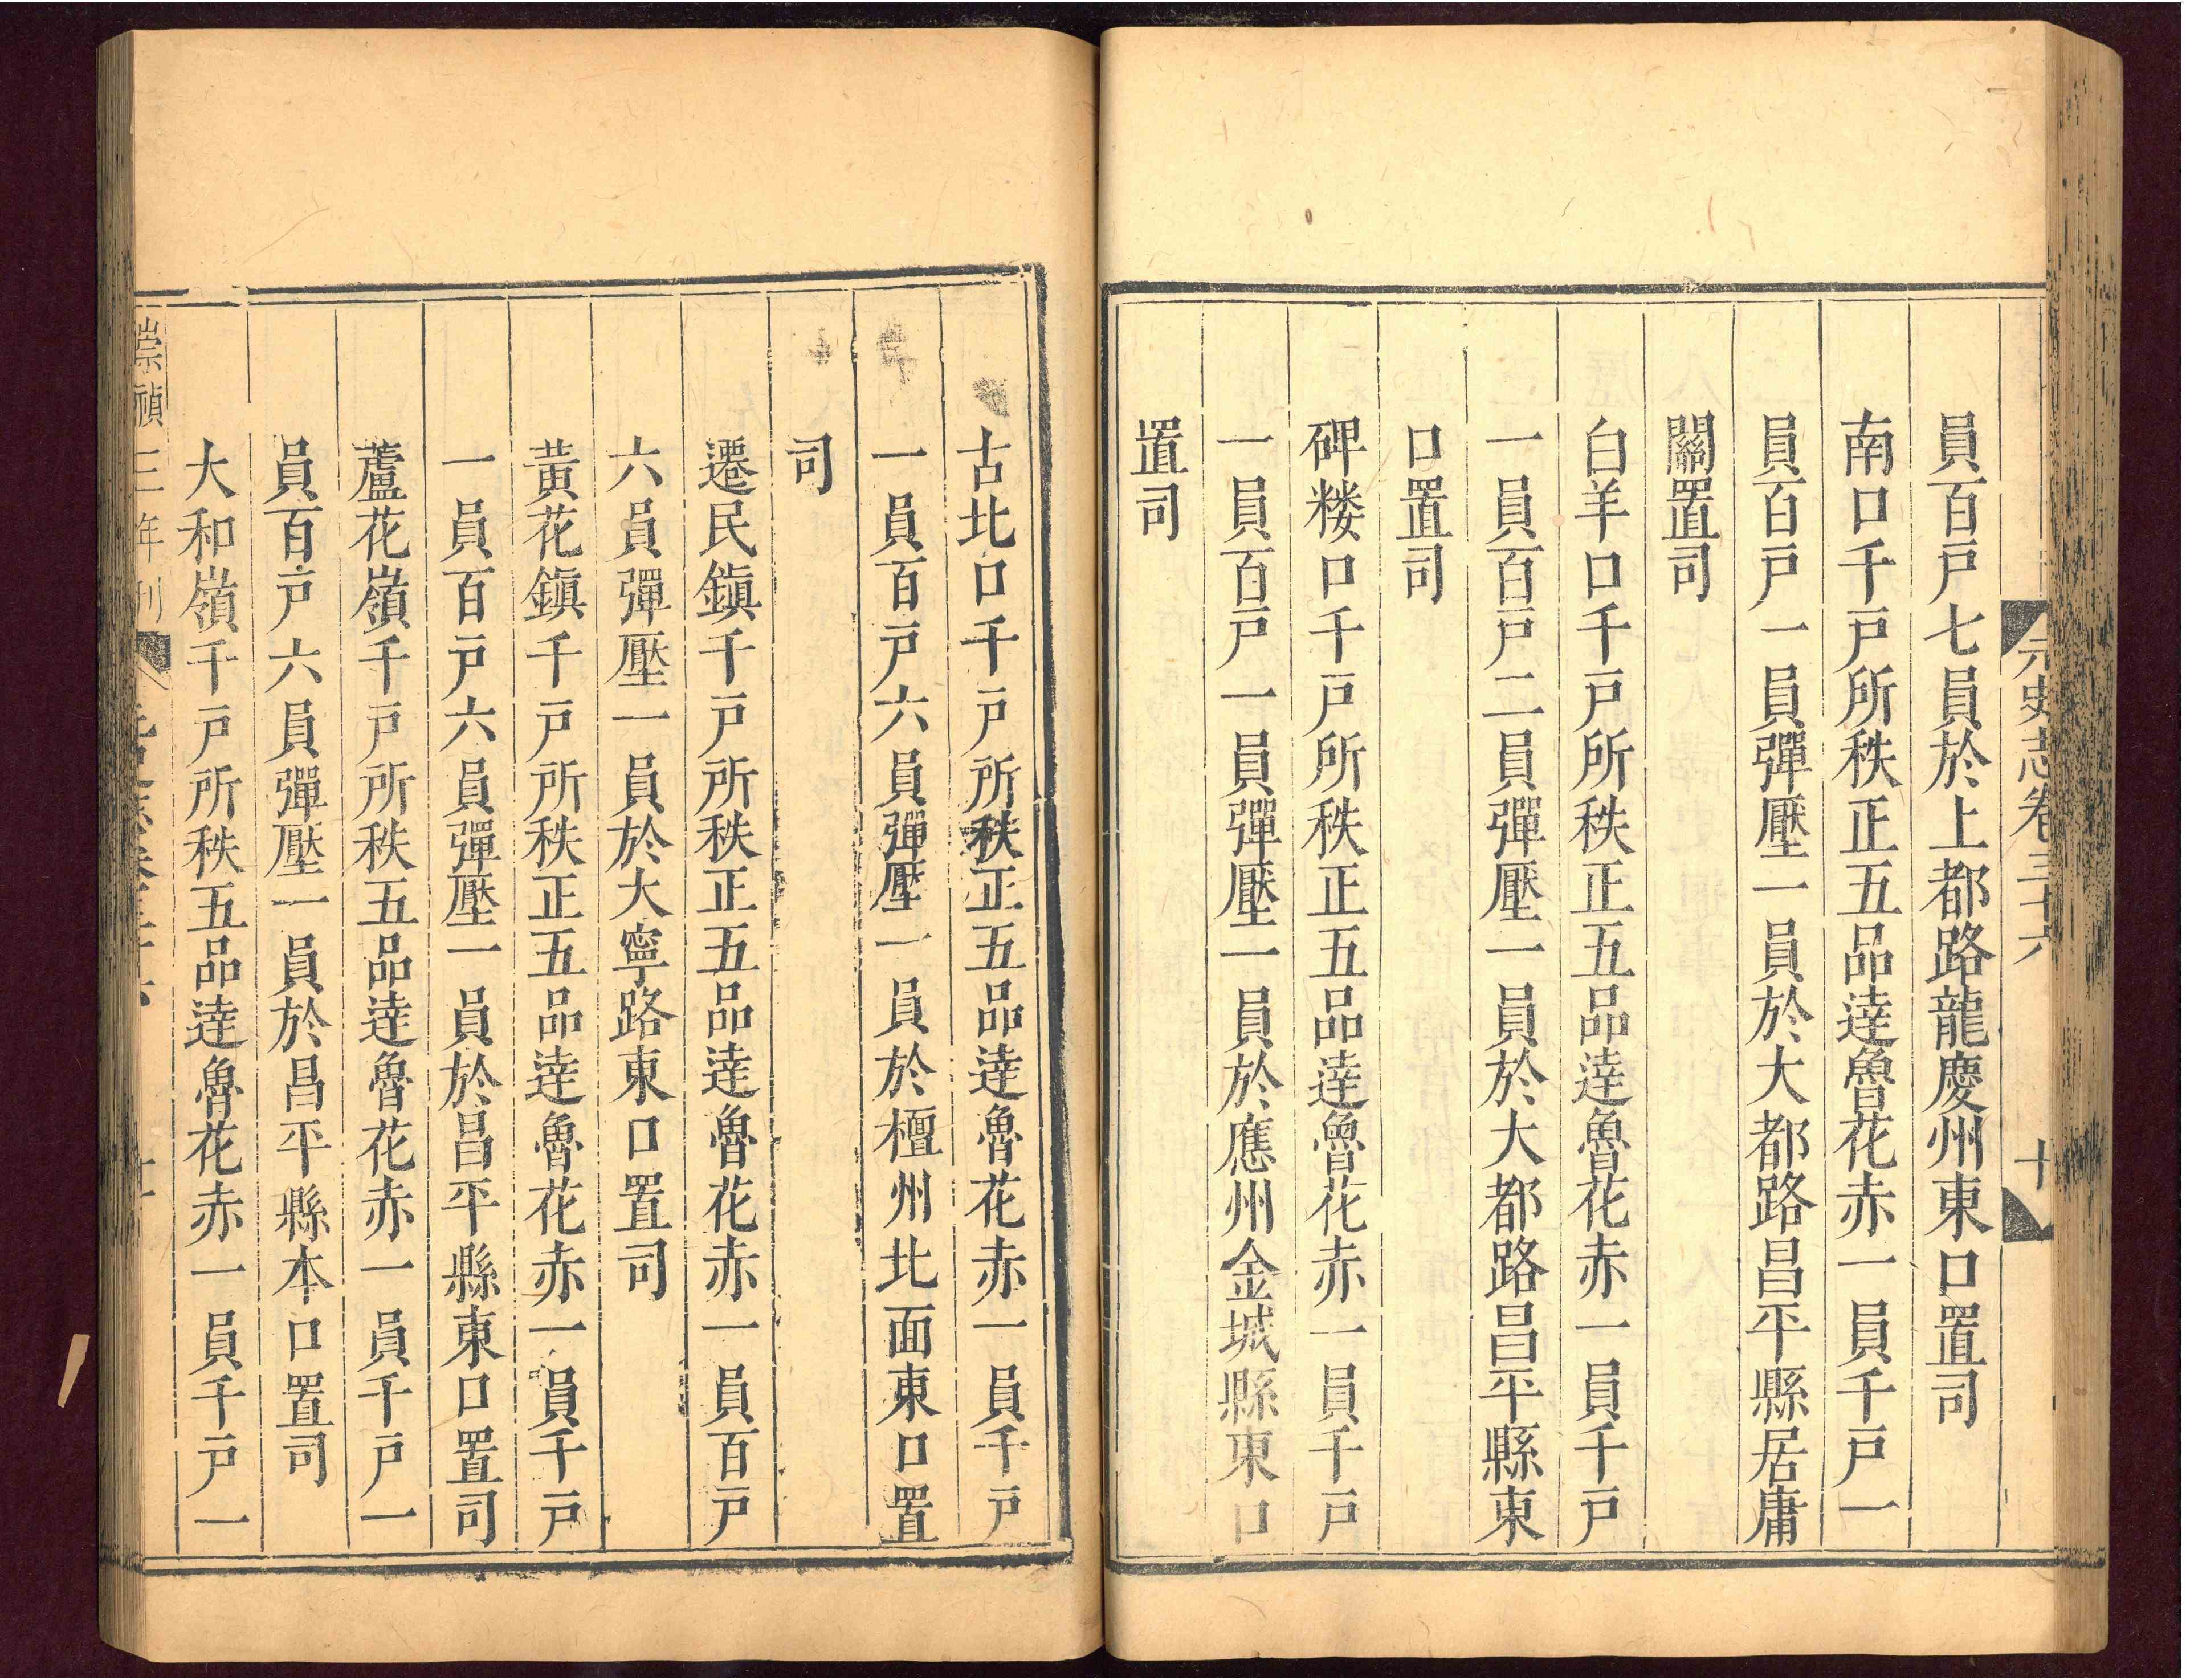 元史志卷三十六 十
員百戸七員於上都路龍慶州東口置司
南口千戸所秩正五品達魯花赤一員千戸一
員百戸一員彈壓一員於大都路昌平縣居庸
關置司
白羊口千戸所秩正五品達魯花赤一員千戸
一員百戸二員彈壓一員於大都路昌平縣東
口置司
碑楼口千戸所秩正五品達魯花赤一員千戸
一員百戸一員彈壓一員於應州金城縣東口
置司
古北口千戸所秩正五品達魯花赤一員千戸
一員百戸六員彈壓一員於檀州北面東口置
司
遷民鎮千戸所秩正五品達魯花赤一員百戸
六員彈壓一員於大寧路東口置司
黃花鎮千戸所秩正五品達魯花赤一員千戸
一員百戸六員彈壓一員於昌平縣東口置司
蘆花嶺千戸所秩五品達魯花赤一員千戸一
員百戸六員彈壓一員於昌平縣本口置司
大和嶺千戸所秩五品達魯花赤一員千戸一
崇禎三年刊 元史志卷三十六 十一